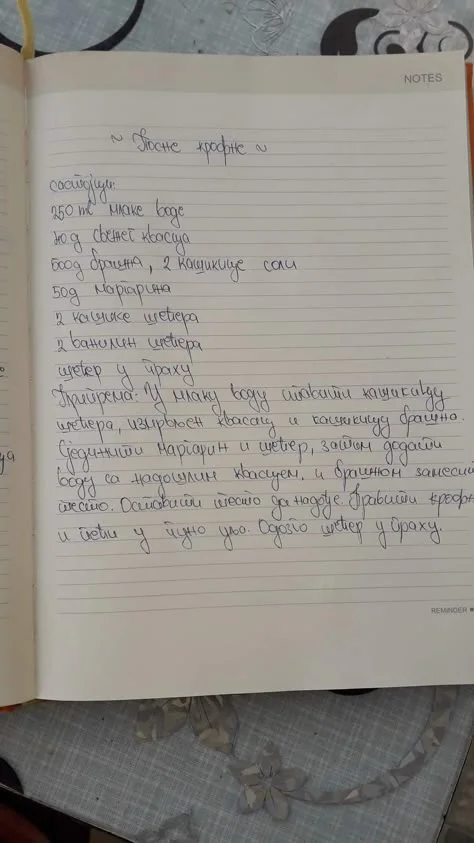 NOTES
~ Посне крофне ~
састојци:
250 ml млаке воде
g свежег квасца
500g брашна, 2 кашикице соли
50g маргарина
2 кашике шећера
2 ванилин шећера
шећер у праху
Припрема: У млаку воду ставити кашикицу
шећера, измрвљен квасац и кашикицу брашна.
Сјединити маргарин и шећер, затим додати
воду са надошлим квасцем. и брашном замесит
тесто. Оставити тесто да надође. Правити крофн
и пећи у пуно уљо. Одозго шећер у праху.
REMINDER